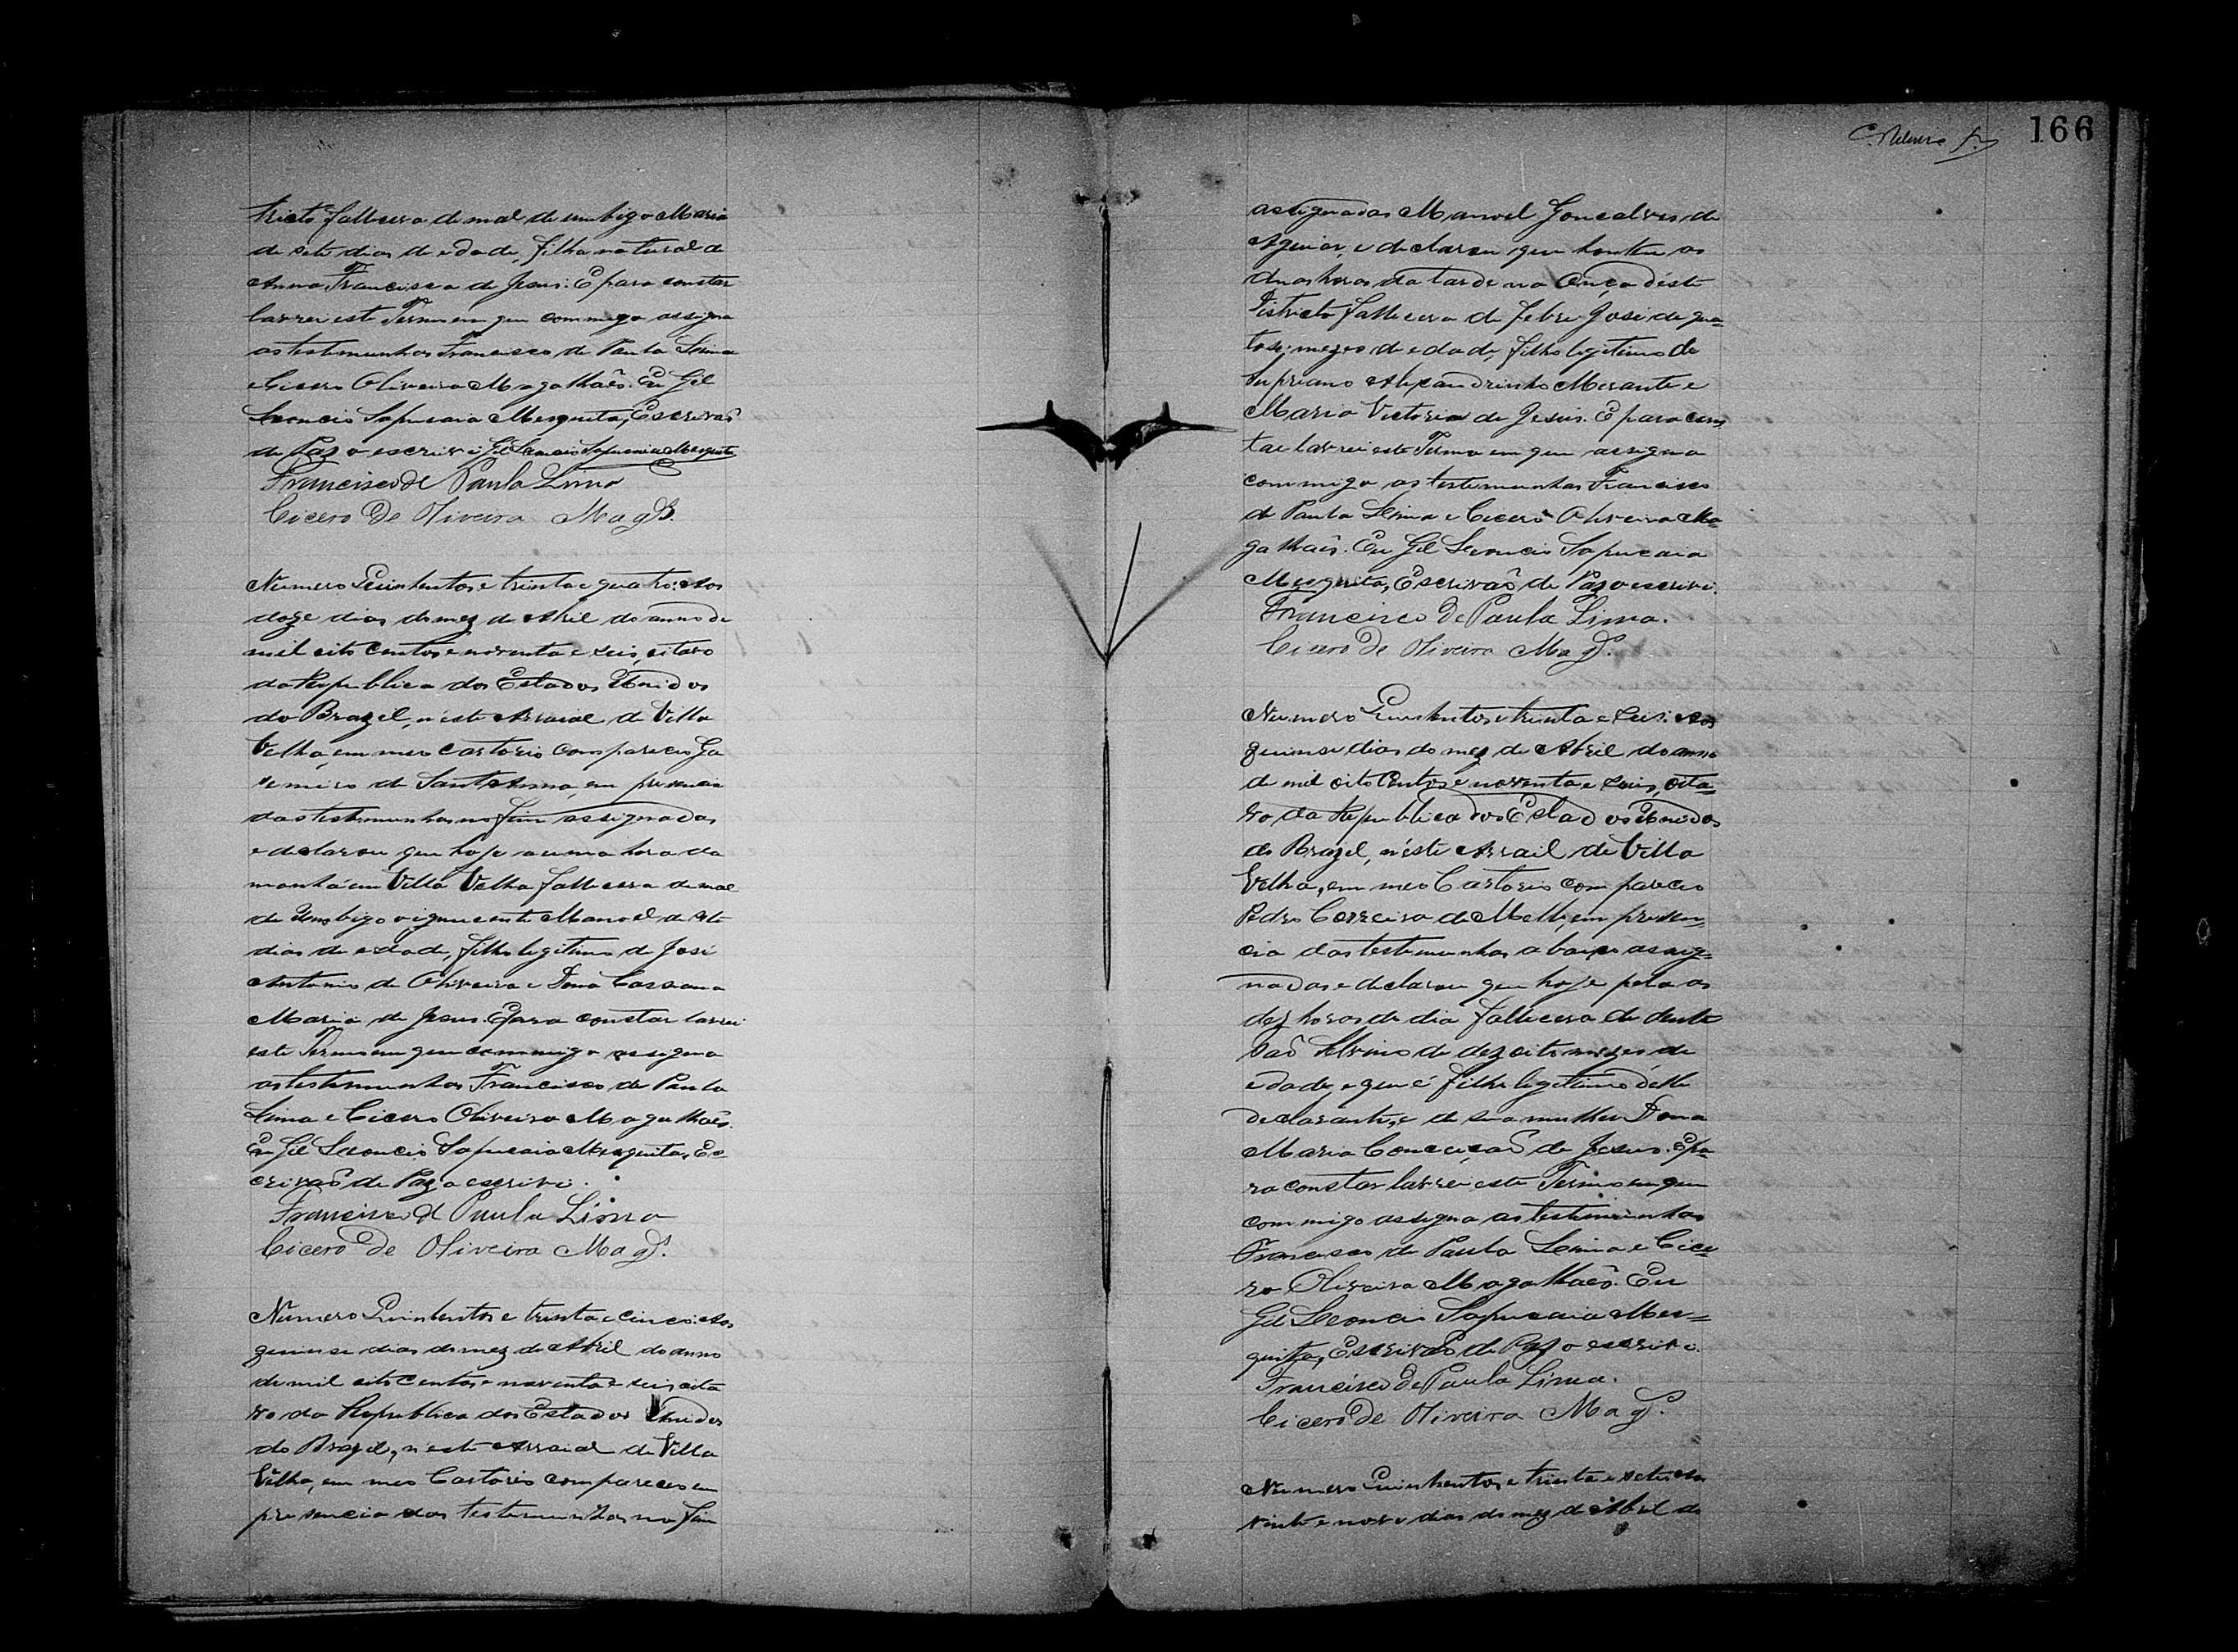 tricto fallecera de mal de umbigo Maria
de sete dias de edade, filha natural de
Anna Francisca de Jesus. E para constar
lavrei este Termo em que commigo assigna
as testemunhas Francisco de Paula Lima
e Cicero Oliveira Magalhães. Eu Gil
Leoncio Sapucaia Mesquita, Escrivão
de Paz o escrivi Gil Leoncio Sapucaia Mesquita
Francisco de Paula Lima
Cicero de Oliveira Mag.s
Numero Quinhentos e trinta e quatro: Aos
doze dias do mez de Abril do anno de
mil oito centos e noventa e seis, oitavo
da Republica dos Estados Unidos
do Brazil, n'este Arraial de Villa
Velha, em meo Cartorio compareceo
de Sant'Anna, em presencia
das testemunhas no fim assignadas
e declarou que hoje a uma hora da
manhã em Villa Velha fallecera de mal
de Umbigo o ignucente Manoel de sete
dias de edade, filho legitimo de José
Antonio de Oliveira e Dona Cassiana
Maria de Jesus. E para constar lavrei
este Termo em que commigo assigna
as testemunhas Francisco de Paula
Lima e Cicero Oliveira Magalhães.
Eu Gil Leoncio Sapucaia Mesquita, Es-
crivão de Paz o escrivi.
Francisco de Paula Lima
Cicero de Oliveira Mag.s
Numero Quinhentos e trinta e cinco: Aos
quinse dias do mez de Abril do anno
de mil oito centos e noventa e seis oita
vo da Republica dos Estados Unidos
do Brazil, n'este Arraial de Villa
Velha, em meo Cartorio compareceo em
presencia das testemunhas no fim
166
assignadas Manoel Gonçalves de
Aguiar, e declarou que hontem as
duas horas da tarde na Onça d'este
Districto fallecera de febre José de qua-
tose mezes de edade, filho legitimo de
Alexandrinho Merante e
Maria Victoria de Jesus. E para cons
tar lavrei este Termo em que assigna
commigo as testemunhas Francisco
de Paula Lima e Cicero Oliveira Ma-
galhães. Eu Gil Leoncio Sapucaia
Mesquita, Escrivão de Paz o escrivi.
Francisco de Paula Lima.
Cicero de Oliveira Mag.s
Numero Quinhentos e trinta e seis: Aos
quinse dias do mez de Abril do anno
de mil oito centos e noventa e seis, oita-
vo da Republica dos Estados Unidos
do Brazil, n'este Arrail de Villa
Velha, em meo Cartorio compareceo
Pedro Correira de Mello, em presen-
cia das testemunhas abaixo assig-
nadas e declarou que hoje pela as
dez horas do dia fallecera de denti
são de dezoito mezes de
edade, e que é filho legitimo d'elle
declarante, e de sua mulher Dona
Maria Conceição de Jesus. E pa
ra constar lavrei este Termo em que
commigo assigna as testemunhas
Francisco de Paula Lima e Cice-
ro Oliveira Magalhães. Eu
Gil Leoncio Sapucaia Mes-
quita, Escrivão de Paz o escrivi.
Francisco de Paula Lima.
Cicero de Oliveira Mag.s
Numero Quinhentos e trinta e sete: Aos
vinte e nove dias do mez de Abril do